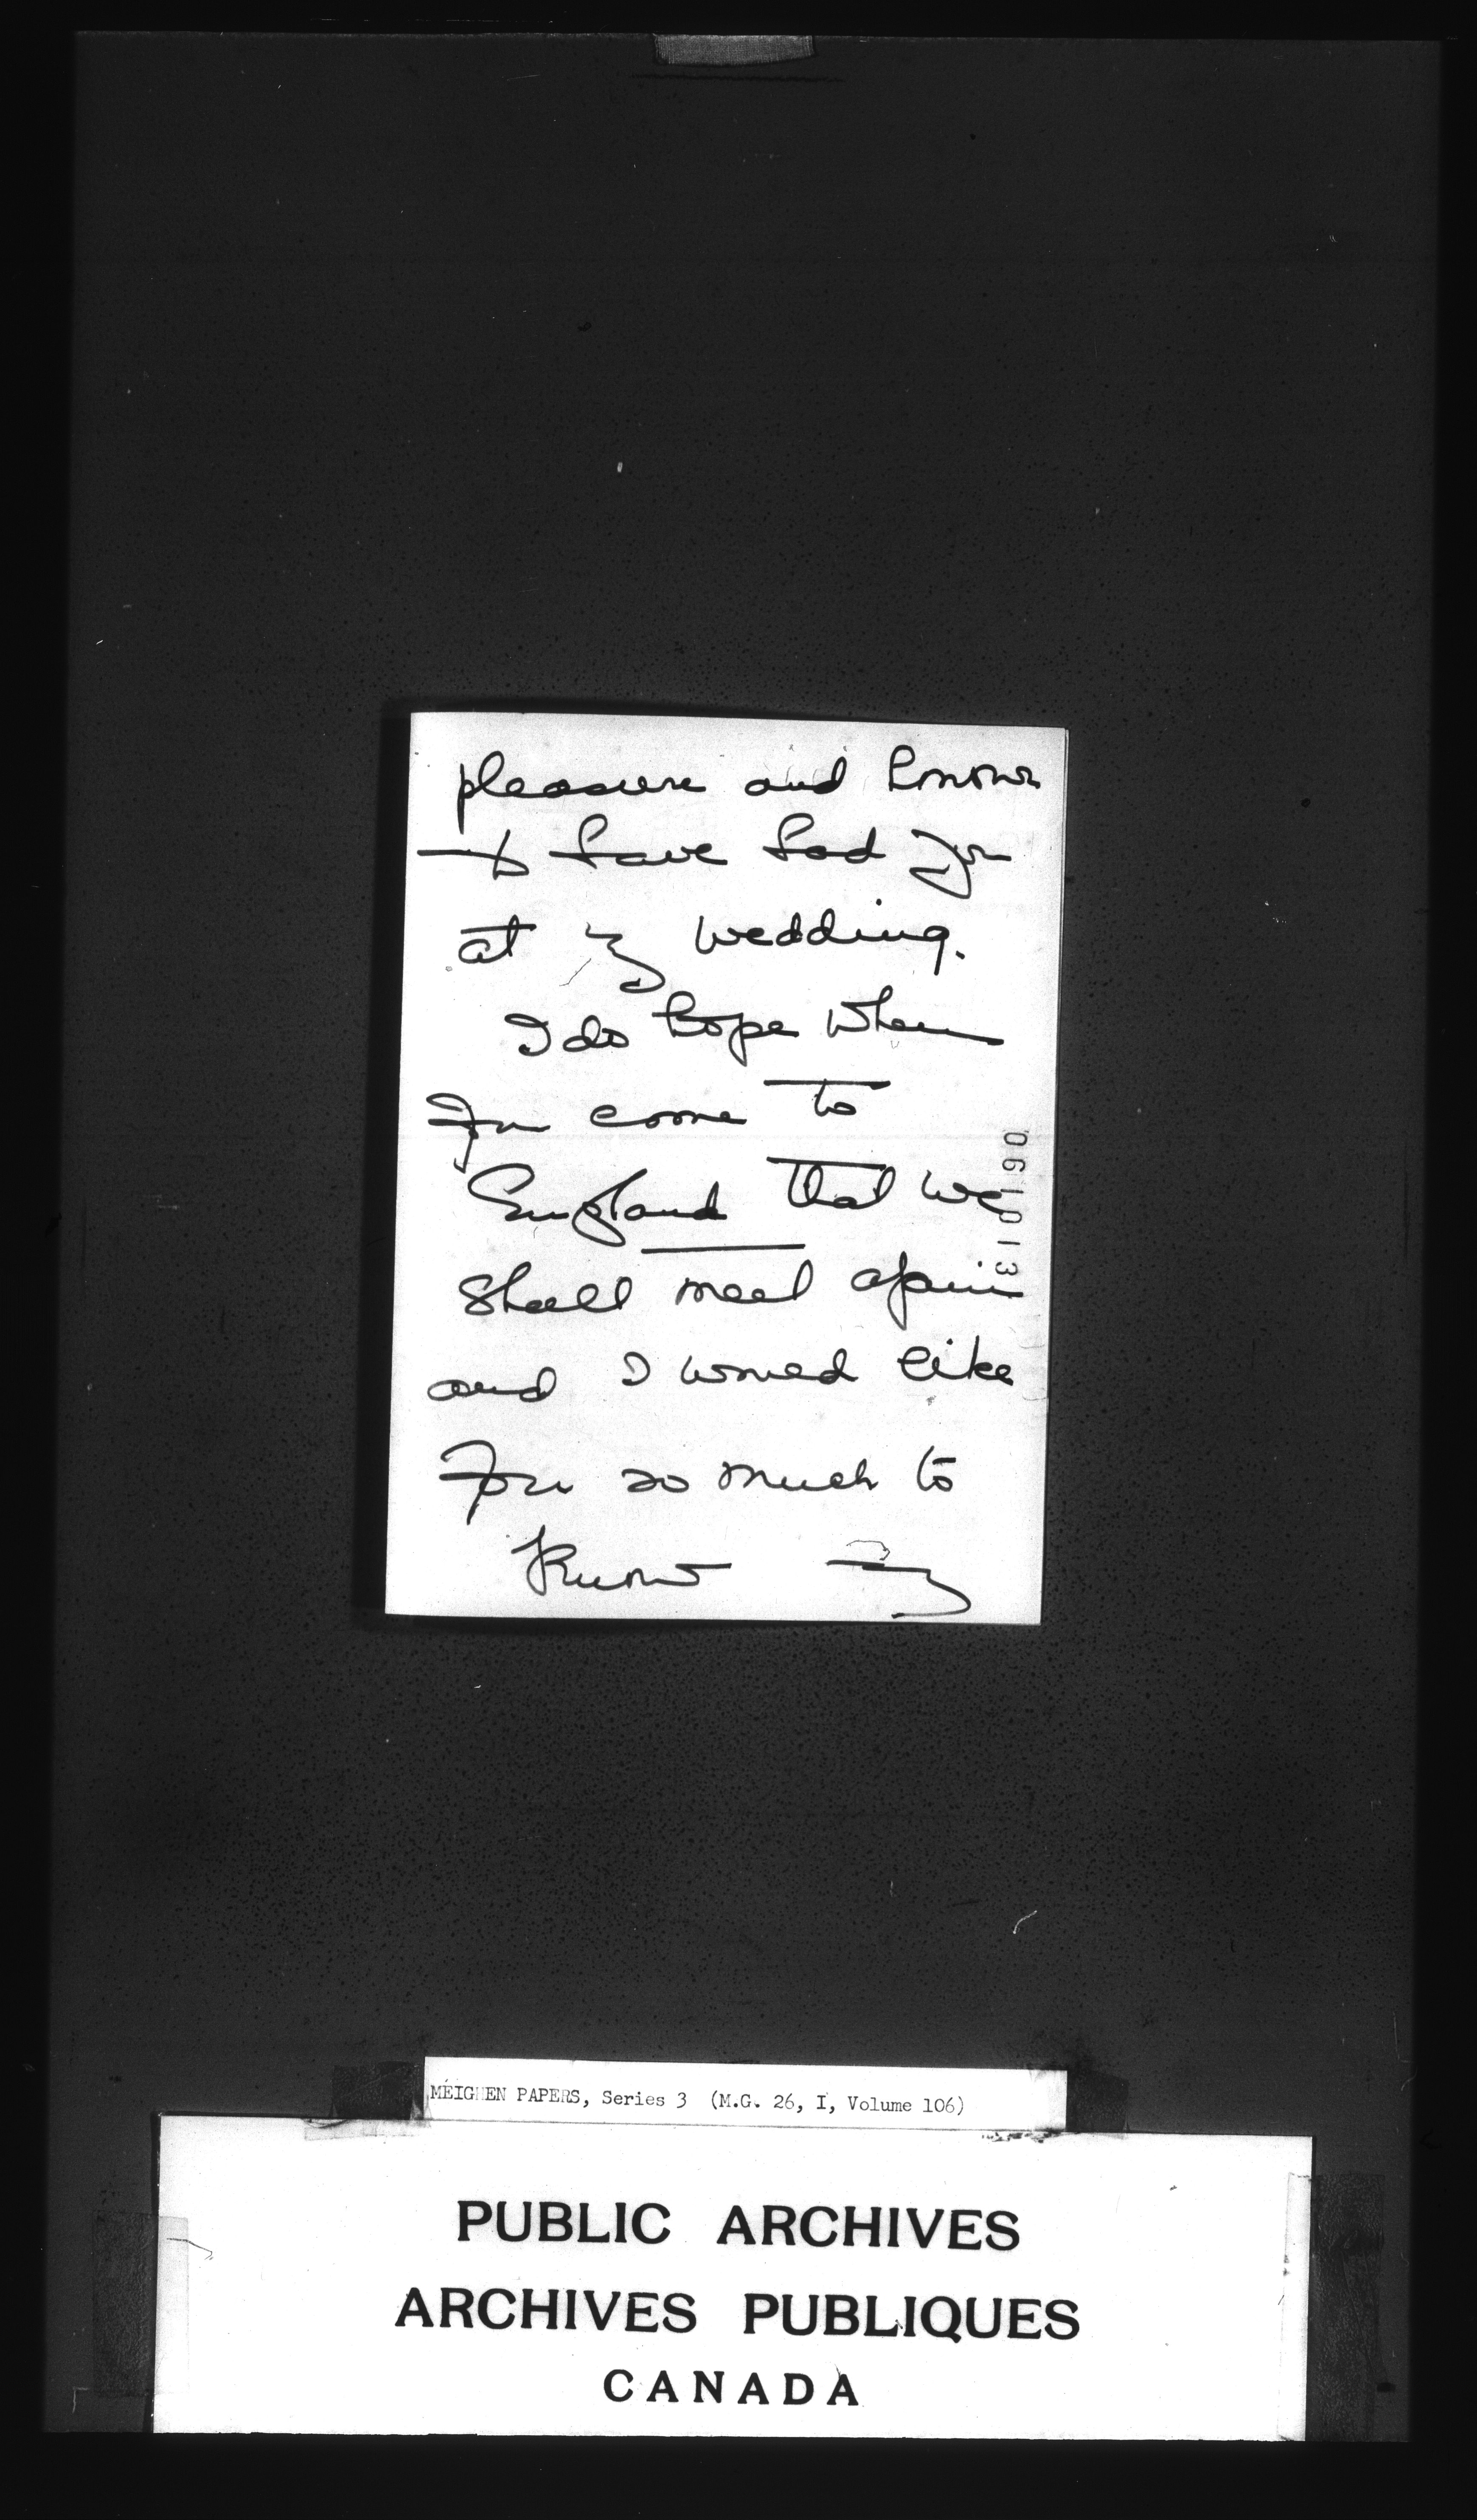 pleasure and honour
to have had you
at my wedding.
I do hope when
you come to
England that we
shall meet again
and I would like
you so much to
know my
061013
MEIGHEN PAPERS, Series 3 (M.G. 26, I, Volume 106)
PUBLIC ARCHIVES
ARCHIVES PUBLIQUES
CANADA